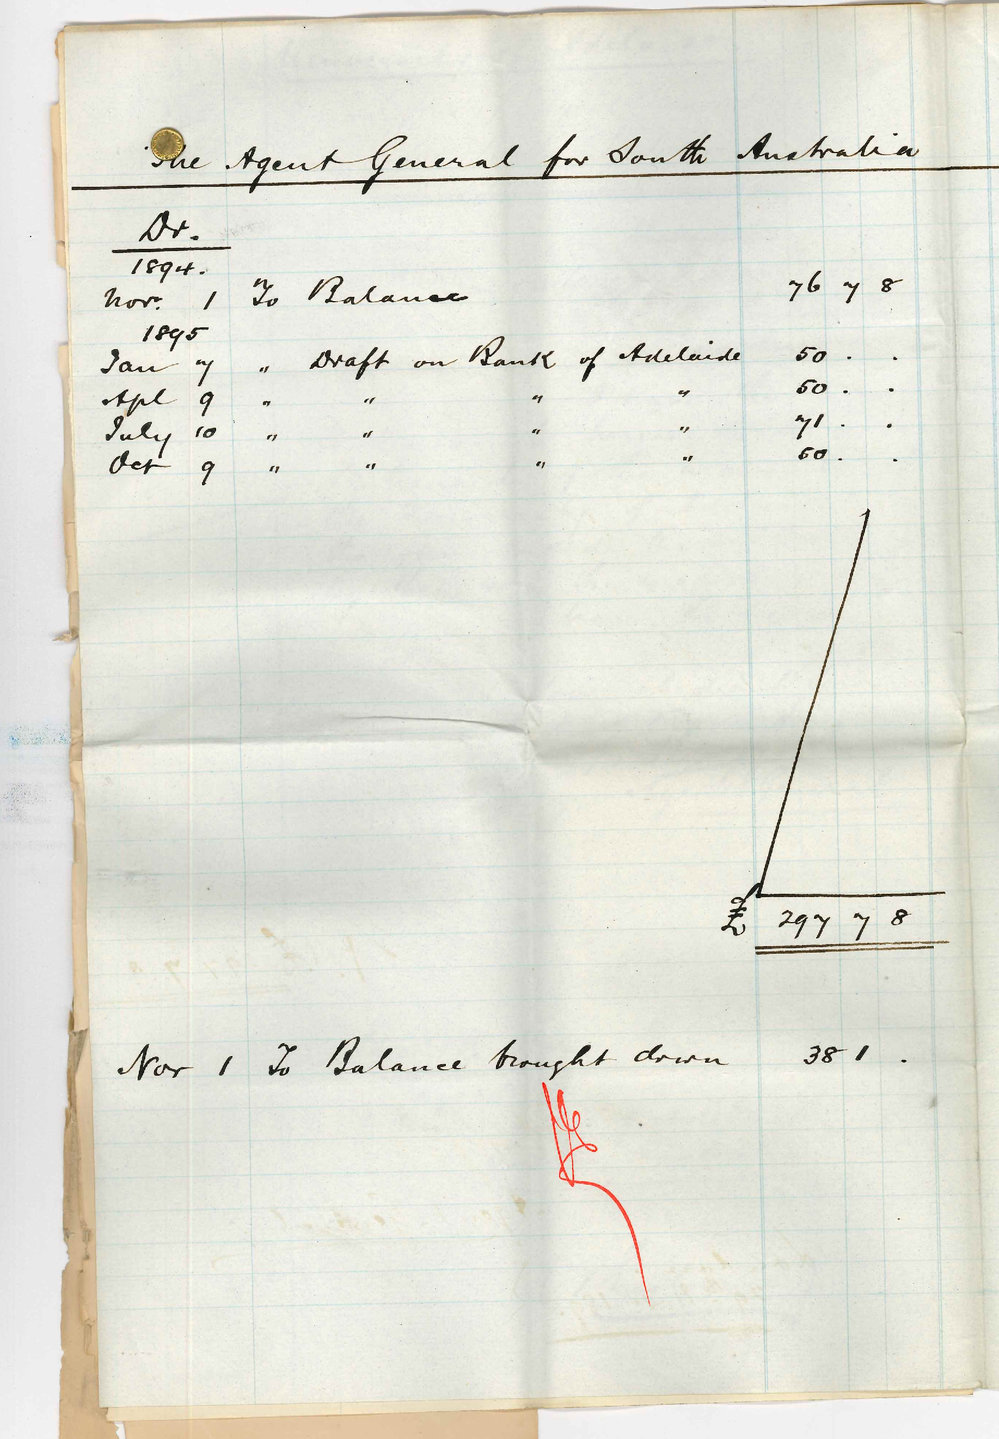 The Agent General for South Australia
Dr.
1894.
Nov. 1 To Balance 76 7 8
1895
Jan 7 " Draft on Bank of Adelaide 50 . .
Apl 9 " " " " 50 . .
July 10 " " " " 71 . .
Oct 9 " " " " 50 . .
£ 297 7 8
Nov 1 To Balance brought down 38 1 .